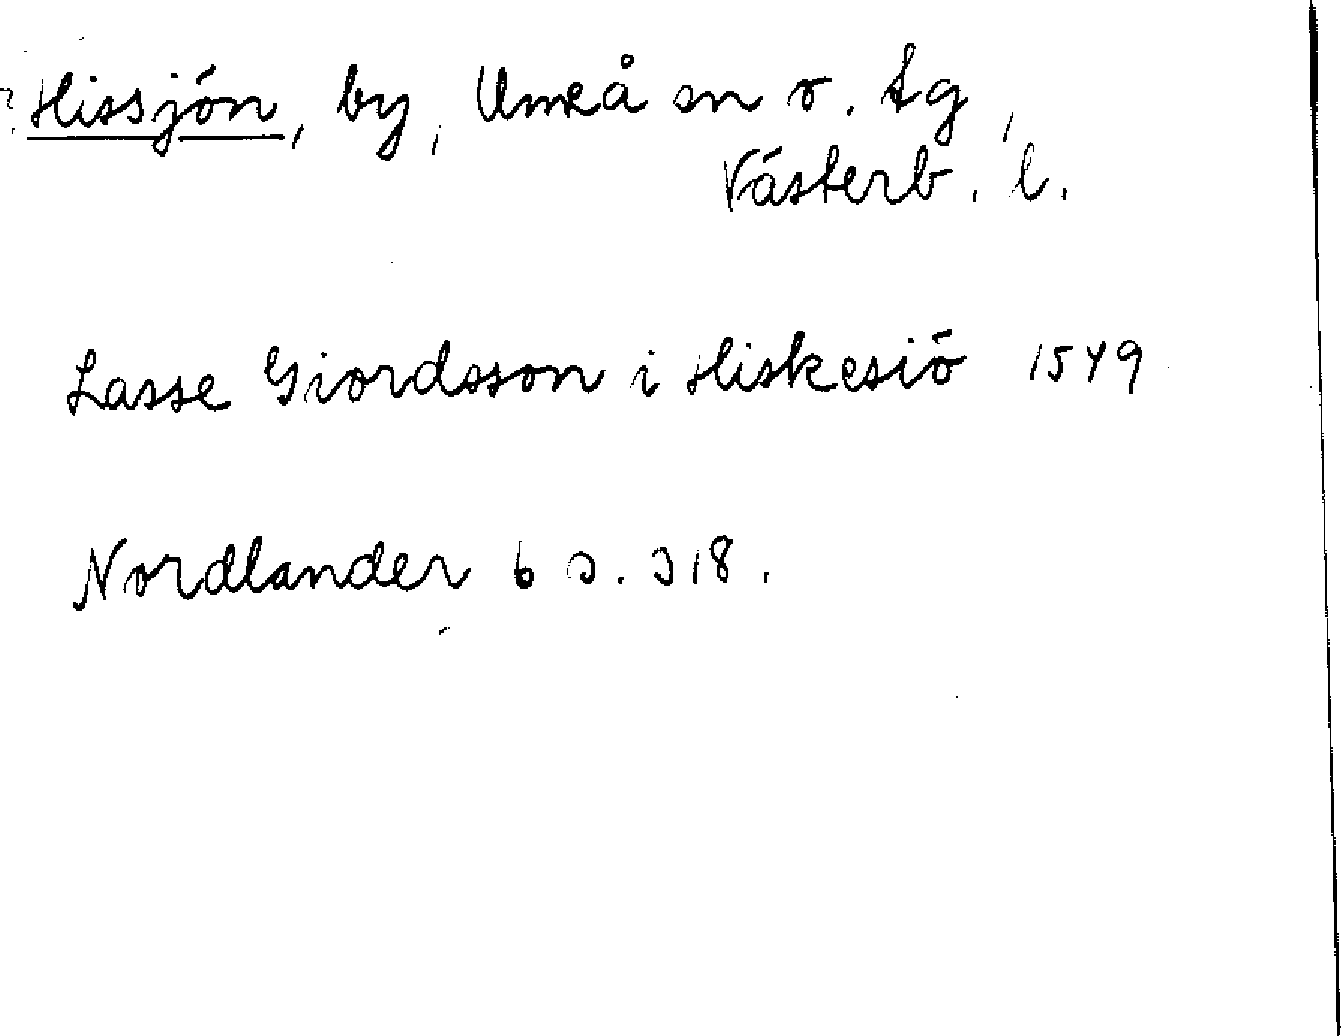 Hissjön, by, Umeå sn o. tg,
Västerb. l.
Lasse Giordsson i Hiskesiö 1549
Nordlander 6 s. 318.